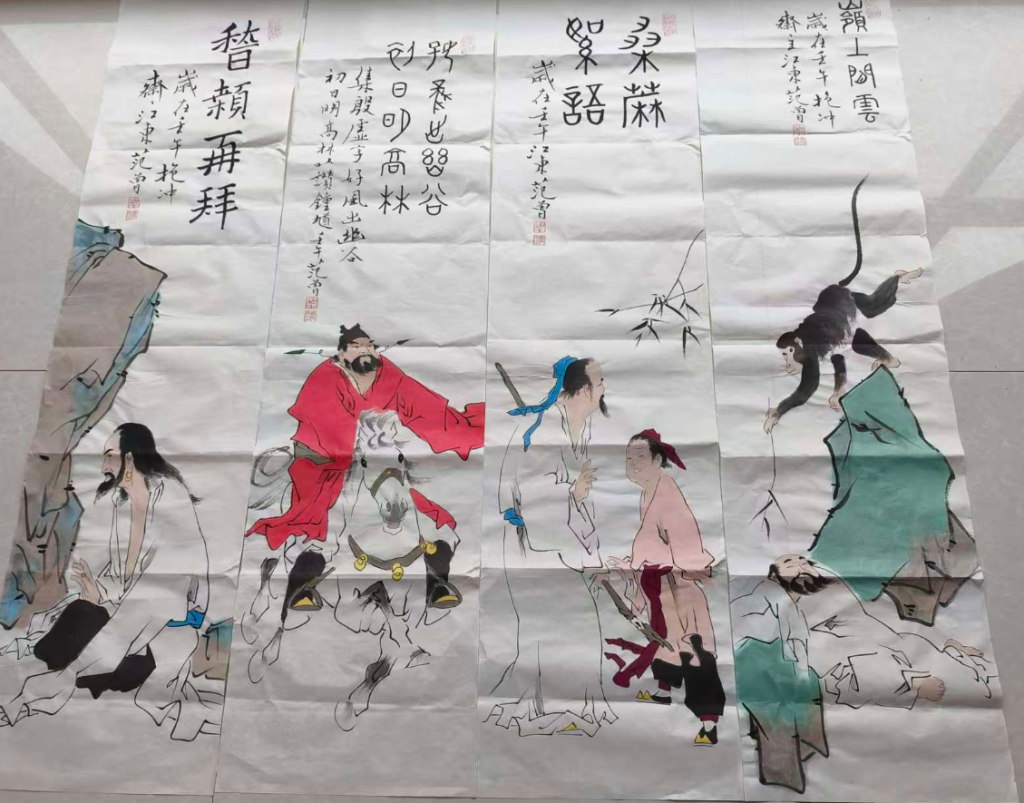 嶺上閒雲
歲在壬午抱冲
齋主江東范曾
桑蔴
絮語
歲在壬午江東范曾
好風出幽谷
初日明高林
集殷虛字好風出幽谷
初日明高林以讚鍾馗壬午范曾
稽顙再拜
歲在壬午抱冲
齋主江東范曾